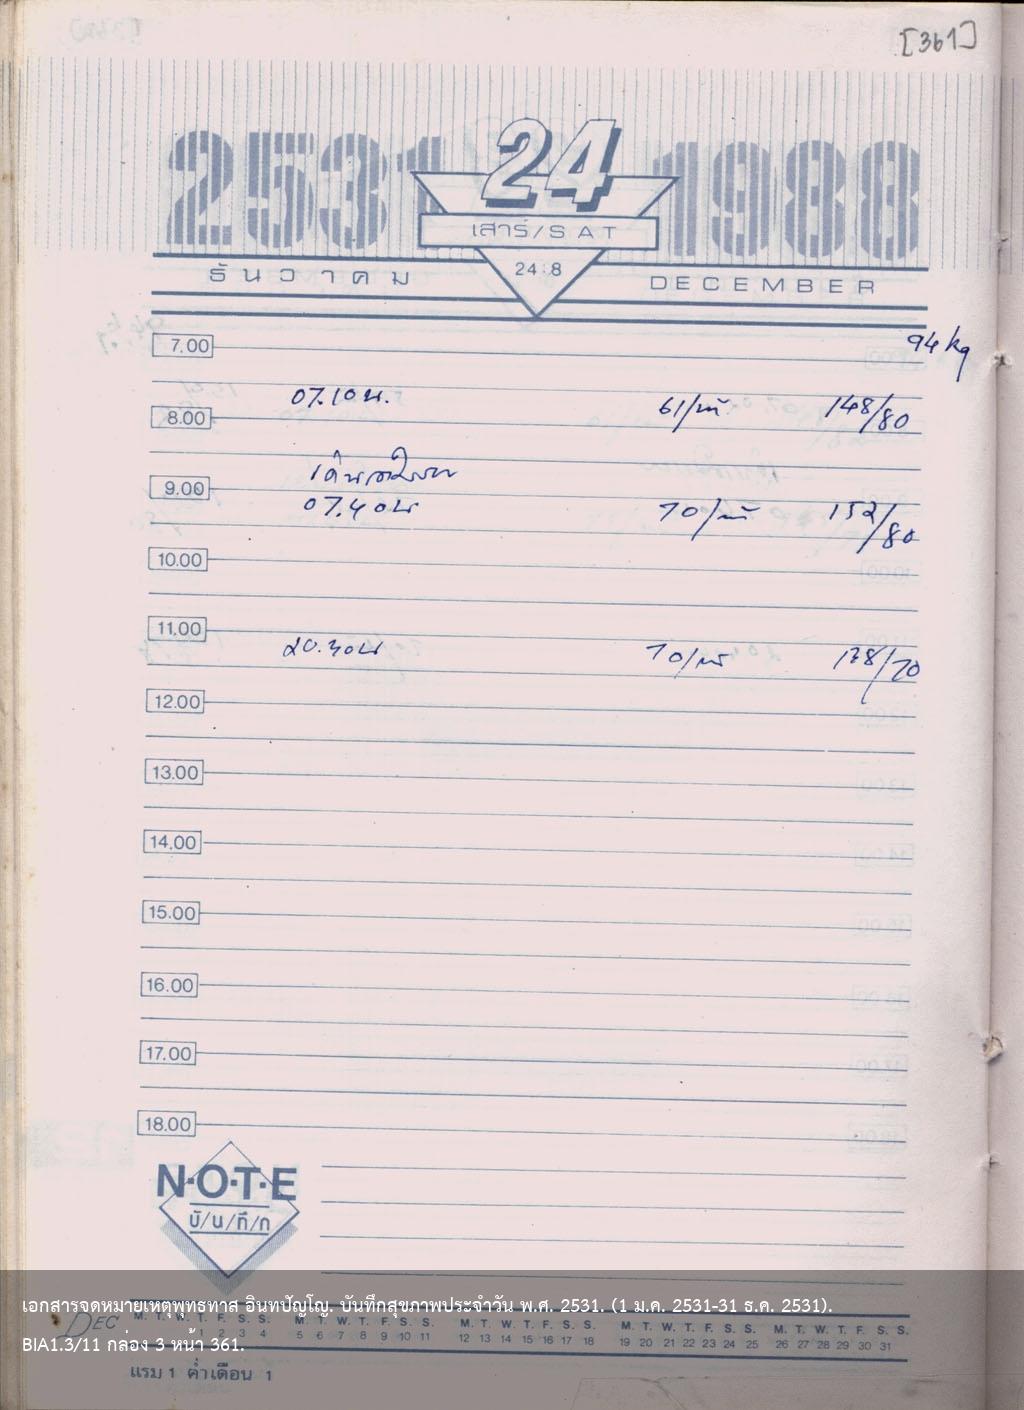 [361]
2531 24 1988
เสาร์/SAT
24:8
ธันวาคม DECEMBER
7.00 94 kg
07.10 น. 61/นาที 148/80
8.00
9.00
07.40 น 70/นาที 152/80
10.00
11.00
20.30 น 70/นาที 138/70
12.00
13.00
14.00
15.00
16.00
17.00
18.00
N·O·T·E
บั/น/ทึ/ก
เอกสารจดหมายเหตุพุทธทาส อินทปัญโญ. บันทึกสุขภาพประจำวัน พ.ศ. 2531. (1 ม.ค. 2531-31 ธ.ค. 2531).
DEC M. T. W. T. F. S. S. M. T. W. T. F. S. S. M. T. W. T. F. S. S. M. T. W. T. F. S. S. M. T. W. T. F. S. S.
1 2 3 4 5 6 7 8 9 10 11 12 13 14 15 16 17 18 19 20 21 22 23 24 25 26 27 28 29 30 31
BIA1.3/11 กล่อง 3 หน้า 361.
แรม 1 ค่ำเดือน 1